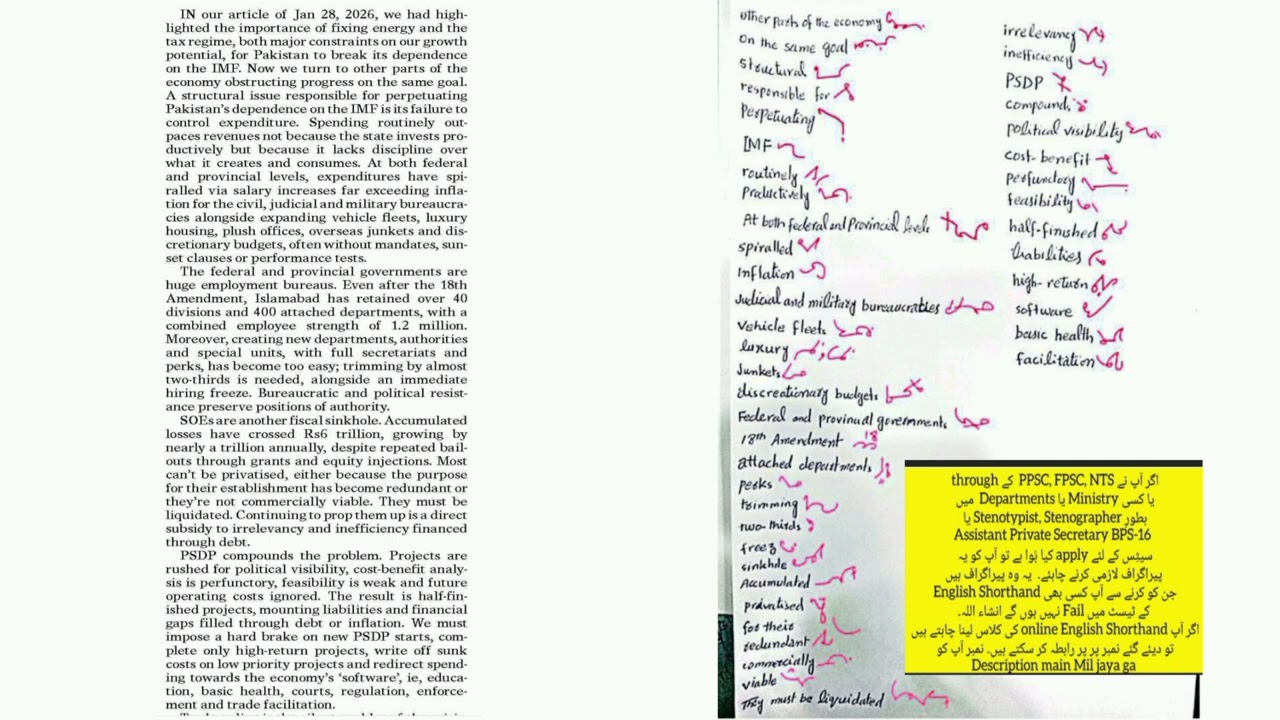 IN our article of Jan 28, 2026, we had high-
lighted the importance of fixing energy and the
tax regime, both major constraints on our growth
potential, for Pakistan to break its dependence
on the IMF. Now we turn to other parts of the
economy obstructing progress on the same goal.
A structural issue responsible for perpetuating
Pakistan's dependence on the IMF is its failure to
control expenditure. Spending routinely out-
paces revenues not because the state invests pro-
ductively but because it lacks discipline over
what it creates and consumes. At both federal
and provincial levels, expenditures have spi-
ralled via salary increases far exceeding infla-
tion for the civil, judicial and military bureaucra-
cies alongside expanding vehicle fleets, luxury
housing, plush offices, overseas junkets and dis-
cretionary budgets, often without mandates, sun-
set clauses or performance tests.
The federal and provincial governments are
huge employment bureaus. Even after the 18th
Amendment, Islamabad has retained over 40
divisions and 400 attached departments, with a
combined employee strength of 1.2 million.
Moreover, creating new departments, authorities
and special units, with full secretariats and
perks, has become too easy; trimming by almost
two-thirds is needed, alongside an immediate
hiring freeze. Bureaucratic and political resist-
ance preserve positions of authority.
SOEs are another fiscal sinkhole. Accumulated
losses have crossed Rs6 trillion, growing by
nearly a trillion annually, despite repeated bail-
outs through grants and equity injections. Most
can't be privatised, either because the purpose
for their establishment has become redundant or
they're not commercially viable. They must be
liquidated. Continuing to prop them up is a direct
subsidy to irrelevancy and inefficiency financed
through debt.
PSDP compounds the problem. Projects are
rushed for political visibility, cost-benefit analy-
sis is perfunctory, feasibility is weak and future
operating costs ignored. The result is half-fin-
ished projects, mounting liabilities and financial
gaps filled through debt or inflation. We must
impose a hard brake on new PSDP starts, com-
plete only high-return projects, write off sunk
costs on low priority projects and redirect spend-
ing towards the economy's 'software', ie, educa-
tion, basic health, courts, regulation, enforce-
ment and trade facilitation.
other parts of the economy
on the same goal
structural
responsible for
Perpetuating
IMF
routinely
Productively
At both federal and Provincial levels
spiralled
Inflation
Judicial and military bureaucracies
vehicle fleets
luxury
Junkets
discreationary budgets
Federal and provincial governments
18th Amendment 18
attached departments
perks
trimming
two-thirds
freez
sinkhole
Accumulated
privatised
for their
redundant
commercially
viable
They must be liquidated
irrelevancy
inefficiency
PSDP
compounds
political visibility
cost-benefit
Perfunctory
feasibility
half-finished
liabilities
high-return
software
basic health
facilitation
اگر آپ نے PPSC, FPSC, NTS کے through
یا کسی Ministry یا Departments میں
بطور Stenotypist, Stenographer یا
Assistant Private Secretary BPS-16
سیٹس کے لئے apply کیا ہُوا ہے تو آپ کو یہ
پیراگراف لازمی کرنے چاہئے۔ یہ وہ پیراگراف ہیں
جن کو کرنے سے آپ کسی بھی English Shorthand
کے ٹیسٹ میں Fail نہیں ہوں گے انشاء اللہ۔
اگر آپ online English Shorthand کی کلاس لینا چاہتے ہیں
تو دیئے گئے نمبر پر پر رابطہ کر سکتے ہیں۔ نمبر آپ کو
Description main Mil jaya ga